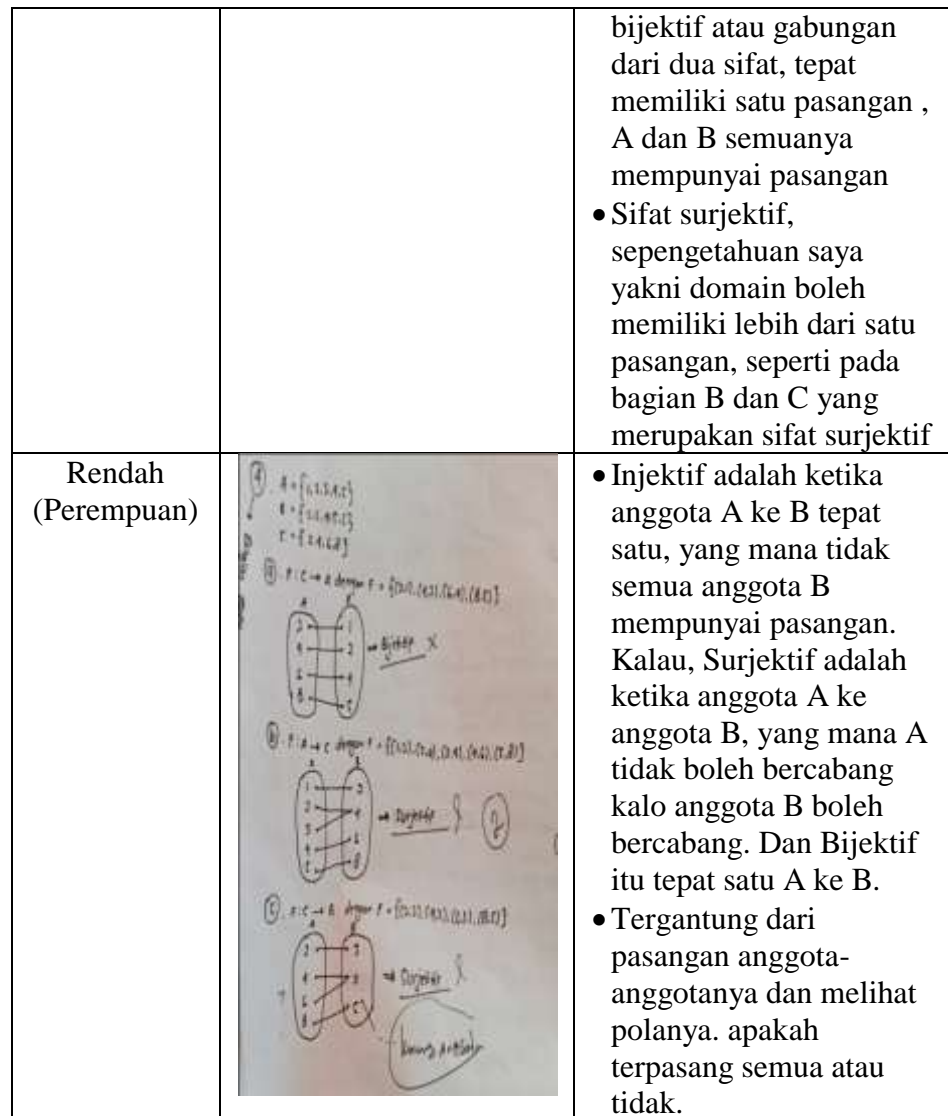 bijektif atau gabungan
dari dua sifat, tepat
memiliki satu pasangan ,
A dan B semuanya
mempunyai pasangan
• Sifat surjektif,
sepengetahuan saya
yakni domain boleh
memiliki lebih dari satu
pasangan, seperti pada
bagian B dan C yang
merupakan sifat surjektif
Rendah
(Perempuan)
A = {1,2,3,4,5}
C = {2,4,6,8}
a . F : C → A dengan F =
A
2
4
6
8
1
2
4
5
→ Bijektif X
b . F : A → C dengan F =
1
2
3
4
5
2
4
6
8
→ Surjektif
2
c . F : C → B dengan F =
A
2
4
6
8
→ Surjektif
• Injektif adalah ketika
anggota A ke B tepat
satu, yang mana tidak
semua anggota B
mempunyai pasangan.
Kalau, Surjektif adalah
ketika anggota A ke
anggota B, yang mana A
tidak boleh bercabang
kalo anggota B boleh
bercabang. Dan Bijektif
itu tepat satu A ke B.
• Tergantung dari
pasangan anggota-
anggotanya dan melihat
polanya. apakah
terpasang semua atau
tidak.